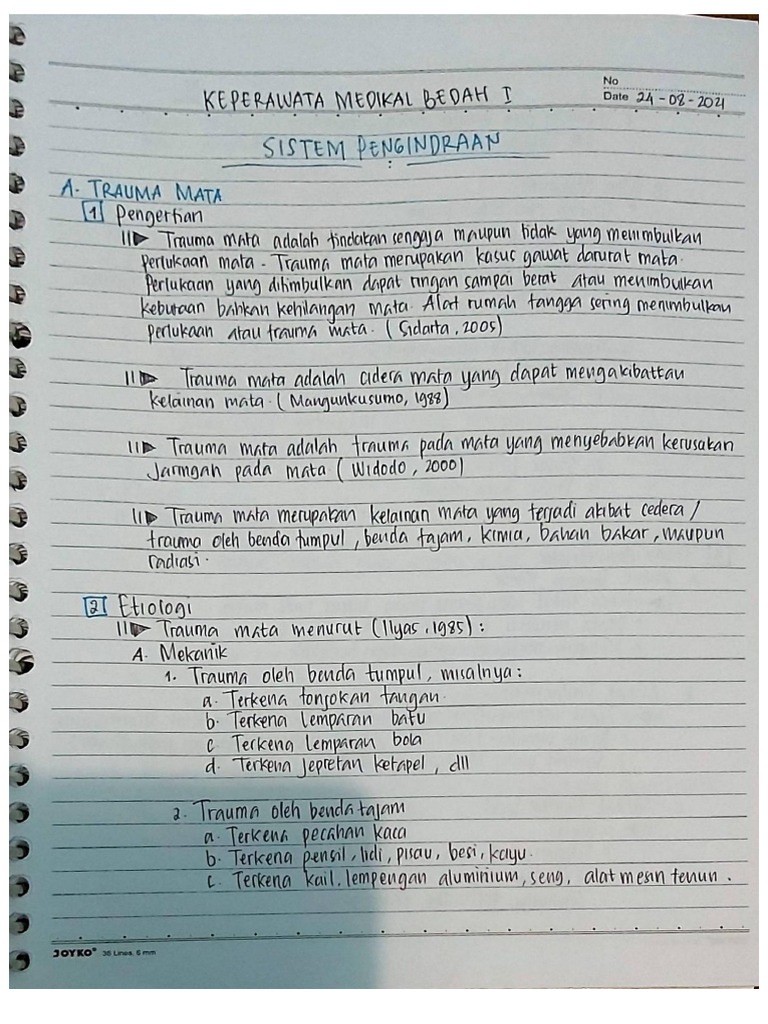 No
KEPERAWATA MEDIKAL BEDAH I
Date 24-08-2021
SISTEM PENGINDRAAN
A. TRAUMA MATA
1 Pengertian
Trauma mata adalah tindakan sengaja maupun tidak yang menimbulkan
perlukaan mata. Trauma mata merupakan kasus gawat darurat mata.
Perlukaan yang ditimbulkan dapat ringan sampai berat atau menimbulkan
kebutaan bahkan kehilangan mata. Alat rumah tangga sering menimbulkan
perlukaan atau trauma mata. (Sidarta, 2005)
Trauma mata adalah cidera mata yang dapat mengakibatkan
kelainan mata. (Mangunkusumo, 1988)
Trauma mata adalah trauma pada mata yang menyebabkan kerusakan
Jaringan pada mata (Widodo, 2000)
Trauma mata merupakan kelainan mata yang terjadi akibat cedera /
trauma oleh benda tumpul, benda tajam, kimia, bahan bakar, maupun
radiasi.
2 Etiologi
Trauma mata menurut (Ilyas, 1985) :
A. Mekanik
1. Trauma oleh benda tumpul, misalnya :
a. Terkena tonjokan tangan.
b. Terkena Lemparan batu
c Terkena Lemparan bola
d. Terkena Jepretan ketapel, dll
2. Trauma oleh benda tajam
a. Terkena pecahan kaca
b. Terkena pensil, lidi, pisau, besi, kayu.
c. Terkena kail, lempengan aluminium, seng, alat mesin tenun.
JOYKO® 36 Lines, 6 mm